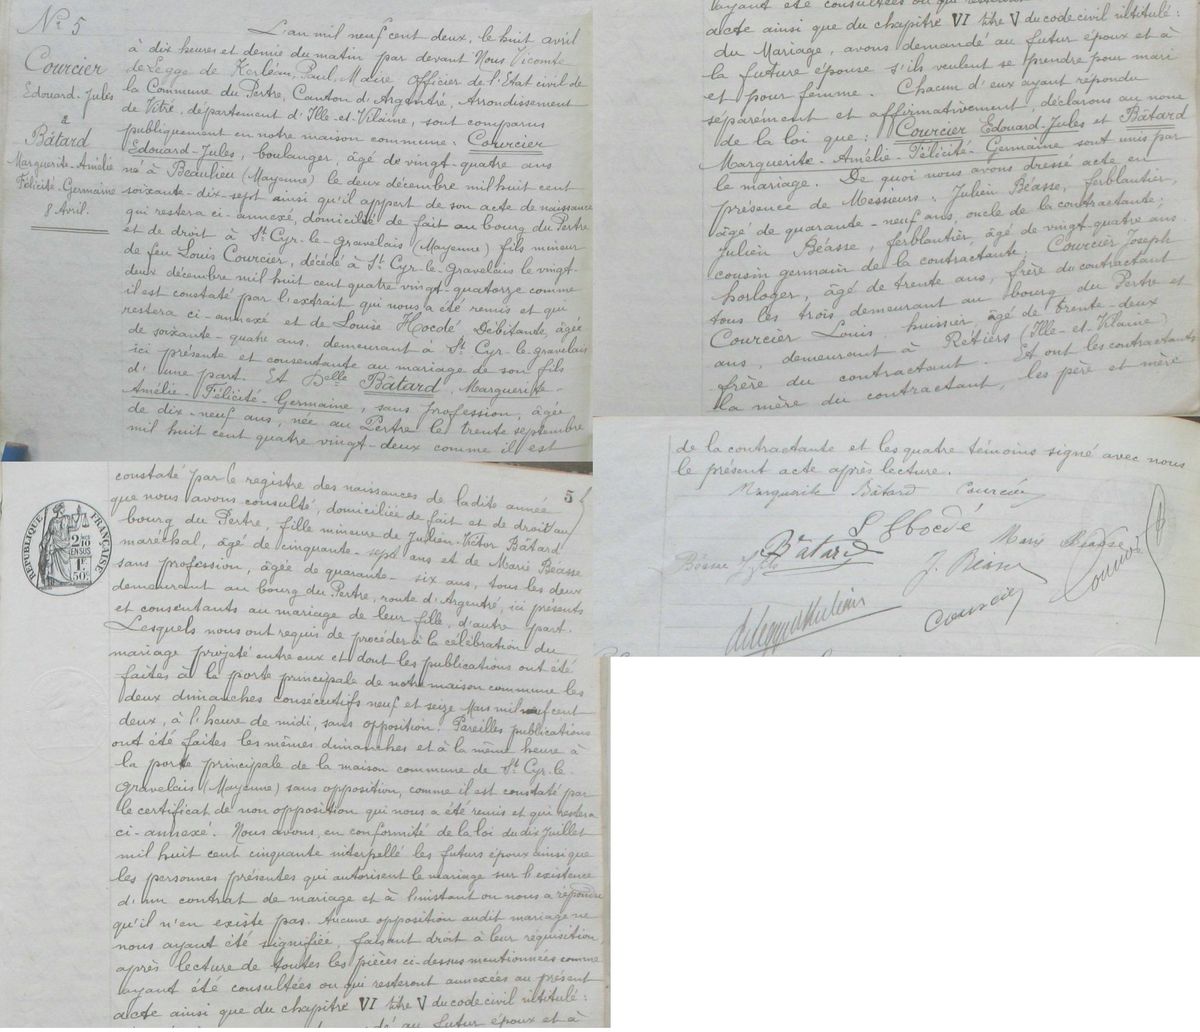 N° 5
Courcier
Edouard-Jules
&
Bâtard
Marguerite-Amélie
Félicité-Germaine
8 Avril.
L'an mil neuf cent deux, le huit avril
à dix heures et demie du matin par devant Nous Vicomte
de Legge de Kerléan, Paul, Maire Officier de l'Etat civil de
la Commune du Pertre, Canton d'Argentré, Arrondissement
de Vitré, département d'Ille-et-Vilaine, sont comparus
publiquement en notre maison commune: Courcier
Edouard-Jules, boulanger, âgé de vingt-quatre ans
né à Beaulieu (Mayenne) le deux décembre mil huit cent
soixante-dix-sept ainsi qu'il appert de son acte de naissance
qui restera ci-annexé, domicilié de fait au bourg du Pertre
et de droit à St Cyr-le-gravelais (Mayenne) fils mineur
de feu Louis Courcier, décédé à St Cyr-le-gravelais le vingt-
deux décembre mil huit cent quatre vingt-quatorze comme
il est constaté par l'extrait qui nous a été remis et qui
restera ci-annexé et de Louise Hocdé, Débitante, âgée
de soixante-quatre ans, demeurant à St Cyr-le-gravelais
ici présente et consentante au mariage de son fils
d'une part. Et Delle Bâtard, Marguerite-
Amélie-Félicité-Germaine, sans profession, âgée
de dix-neuf ans, née au Pertre le trente septembre
mil huit cent quatre vingt-deux comme il est
5
RÉPUBLIQUE FRANÇAISE
2/10 EN SUS
1F 50c
constaté par le registre des naissances de ladite année
que nous avons consulté, domiciliée de fait et de droit au
bourg du Pertre, fille mineure de Julien-Victor Bâtard
maréchal, âgé de cinquante-sept ans et de Marie Béasse
sans profession, âgée de quarante-six ans, tous les deux
demeurant au bourg du Pertre, route d'Argentré, ici présents
et consentants au mariage de leur fille, d'autre part.
Lesquels nous ont requis de procéder à la célébration du
mariage projeté entre eux et dont les publications ont été
faites à la porte principale de notre maison commune les
deux dimanches consécutifs neuf et seize Mars mil neuf cent
deux, à l'heure de midi, sans opposition. Pareilles publications
ont été faites les mêmes dimanches et à la même heure à
la porte principale de la maison commune de St Cyr-le-
gravelais (Mayenne) sans opposition, comme il est constaté par
le certificat de non opposition qui nous a été remis et qui restera
ci-annexé. Nous avons, en conformité de la loi du dix Juillet
mil huit cent cinquante interpellé les futurs époux ainsi que
les personnes présentes qui autorisent le mariage sur l'existence
d'un contrat de mariage et à l'instant on nous a répondu
qu'il n'en existe pas. Aucune opposition audit mariage ne
nous ayant été signifiée, faisant droit à leur réquisition,
après lecture de toutes les pièces ci-dessus mentionnées comme
ayant été consultées ou qui resteront annexées au présent
acte ainsi que du chapitre VI titre V du code civil intitulé:
du futur époux et à
ayant été consultées ou qui
acte ainsi que du chapitre VI titre V du code civil intitulé:
du Mariage, avons demandé au futur époux et à
la future épouse s'ils veulent se prendre pour mari
et pour femme. Chacun d'eux ayant répondu
séparément et affirmativement, déclarons au nom
de la loi que: Courcier Edouard-Jules et Bâtard
Marguerite-Amélie-Félicité-Germaine sont unis par
le mariage. De quoi nous avons dressé acte en
présence de Messieurs: Julien Béasse, ferblantier,
âgé de quarante-neuf ans, oncle de la contractante;
Julien Béasse, ferblantier, âgé de vingt-quatre ans
cousin germain de la contractante; Courcier Joseph
horloger, âgé de trente ans, frère du contractant
tous les trois demeurant au bourg du Pertre et
Courcier Louis huissier, âgé de trente-deux
ans, demeurant à Retiers (Ille-et-Vilaine)
frère du contractant. Et ont les contractants
la mère du contractant, les père et mère
de la contractante et les quatre témoins signé avec nous
le présent acte après lecture.
Marguerite Bâtard Courcier
L Hocdé
Bâtard
Marie Béasse
Béasse
J. Béasse
Courcier
Courcier